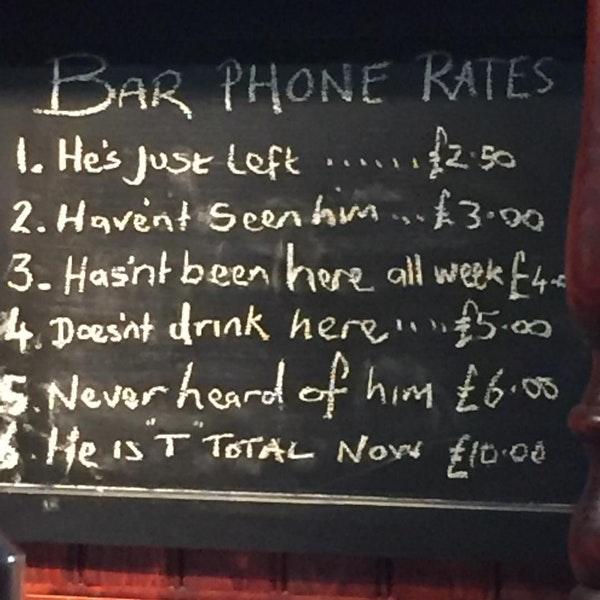 BAR PHONE RATES
1. He's Just Left ...... £2.50
2. Haven't Seen him ... £3.00
3. Has'nt been here all week £4.
4. Does'nt drink here .... £5.00
5. Never heard of him £6.00
6. He is "T" TOTAL NOW £10.00